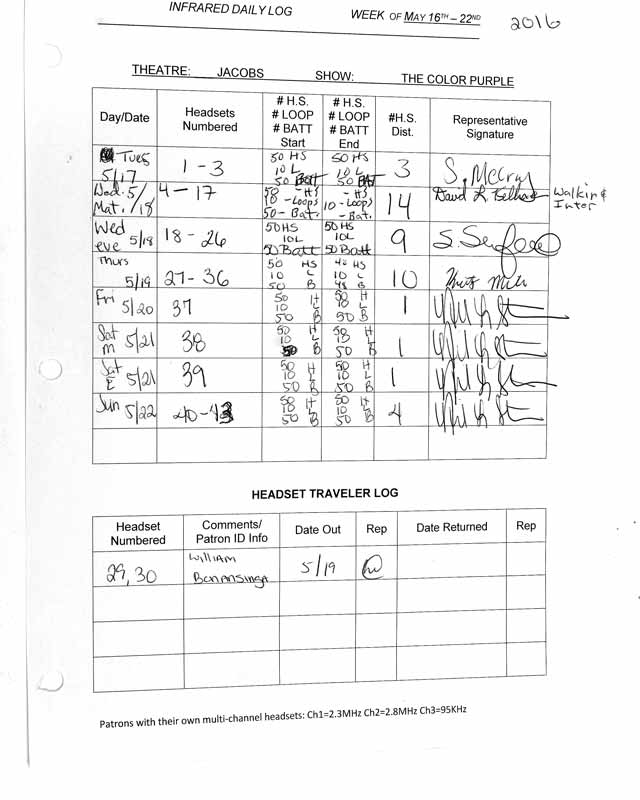 INFRARED DAILY LOG WEEK OF MAY 16TH – 22ND 2016
THEATRE: JACOBS SHOW: THE COLOR PURPLE
Day/Date Headsets Numbered # H.S. # LOOP # BATT Start # H.S. # LOOP # BATT End #H.S. Dist. Representative Signature
Tues 5/17 1-3 50 HS 10 L 50 Batt 50 HS 10 L 50 Batt 3 S. McCray
Wed. 5/18 Mat. 4-17 50 - HS 10 - Loops 50 - Bat. - HS 10 - Loops - Bat. 14 David L Walkin &
Wed eve 5/18 18-26 50 HS 10L 50 Batt 50 HS 10L 50 Batt 9 S.
Thurs 5/19 27-36 50 HS 10 L 50 B 48 HS 10 L 48 B 10
Fri 5/20 37 50 H 10 L 50 B 50 H 10 L 50 B 1
Sat M 5/21 38 50 H 10 L 50 B 50 H 10 L 50 B 1
Sat E 5/21 39 50 H 10 L 50 B 50 H 10 L 50 B 1
Sun 5/22 40-43 50 H 10 L 50 B 50 H 10 L 50 B 4
HEADSET TRAVELER LOG
Headset Numbered Comments/ Patron ID Info Date Out Rep Date Returned Rep
29, 30 William Bonansinga 5/19
Patrons with their own multi-channel headsets: Ch1=2.3MHz Ch2=2.8MHz Ch3=95KHz